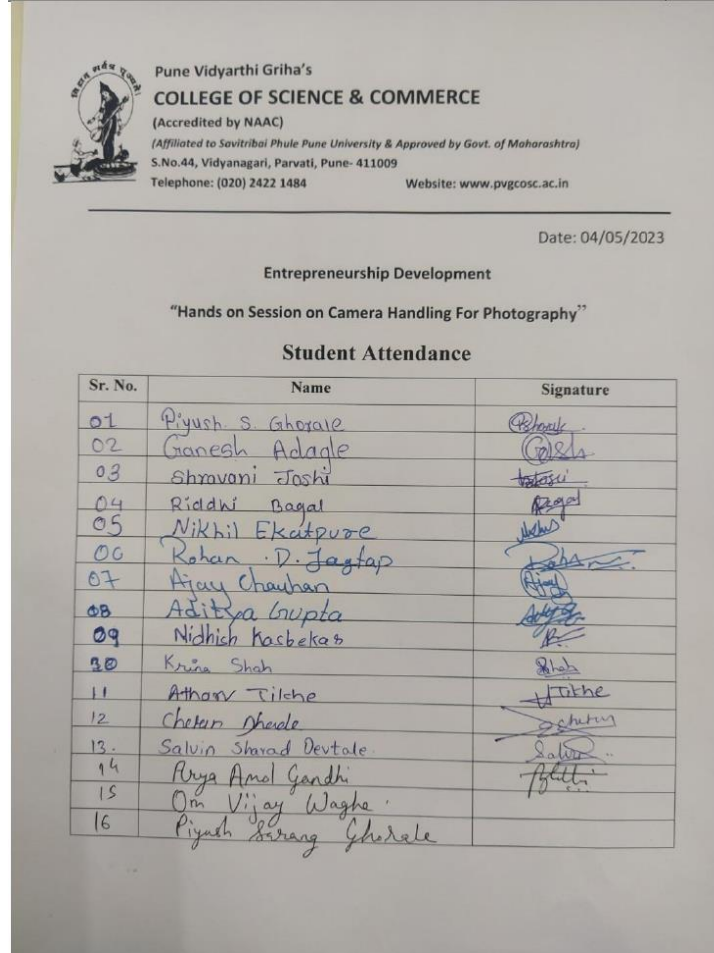 विद्वान सर्वत्र पूज्यते।
Pune Vidyarthi Griha's
COLLEGE OF SCIENCE & COMMERCE
(Accredited by NAAC)
(Affiliated to Savitribai Phule Pune University & Approved by Govt. of Maharashtra)
S.No.44, Vidyanagari, Parvati, Pune- 411009
Telephone: (020) 2422 1484 Website: www.pvgcosc.ac.in
Date: 04/05/2023
Entrepreneurship Development
“Hands on Session on Camera Handling For Photography”
Student Attendance
Sr. No. Name Signature
01 Piyush. S. Ghorale
02 Ganesh Adagle
03 Shravani Joshi
04 Riddhi Bagal Bagal
05 Nikhil Ekatpure
06 Rohan .D. Jagtap
07 Ajay Chauhan Ajay
08 Aditya Gupta
09 Nidhish Kasbekar
10 Krina Shah Shah
11 Atharv Tilche Tilche
12 Chetan Dhede Chetan
13. Salvin Sharad Devtale.
14 Arya Amol Gandhi
15 Om Vijay Waghe.
16 Piyush Sarang Ghorale